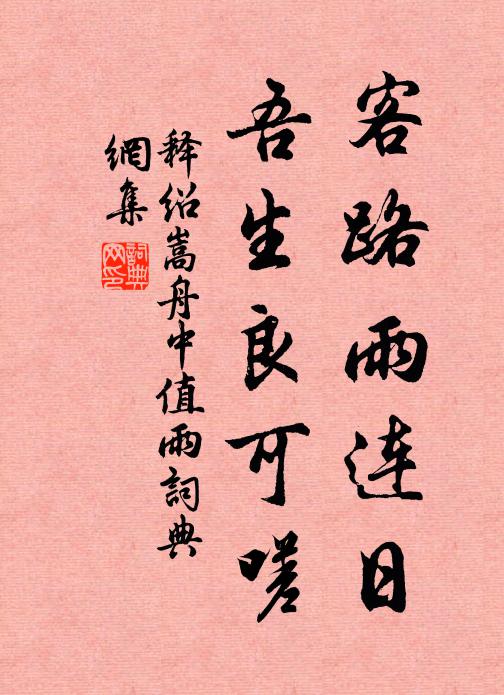 客路雨连日
吾生良可嗟
释绍嵩舟中值雨詞典
網集
詞典
网印